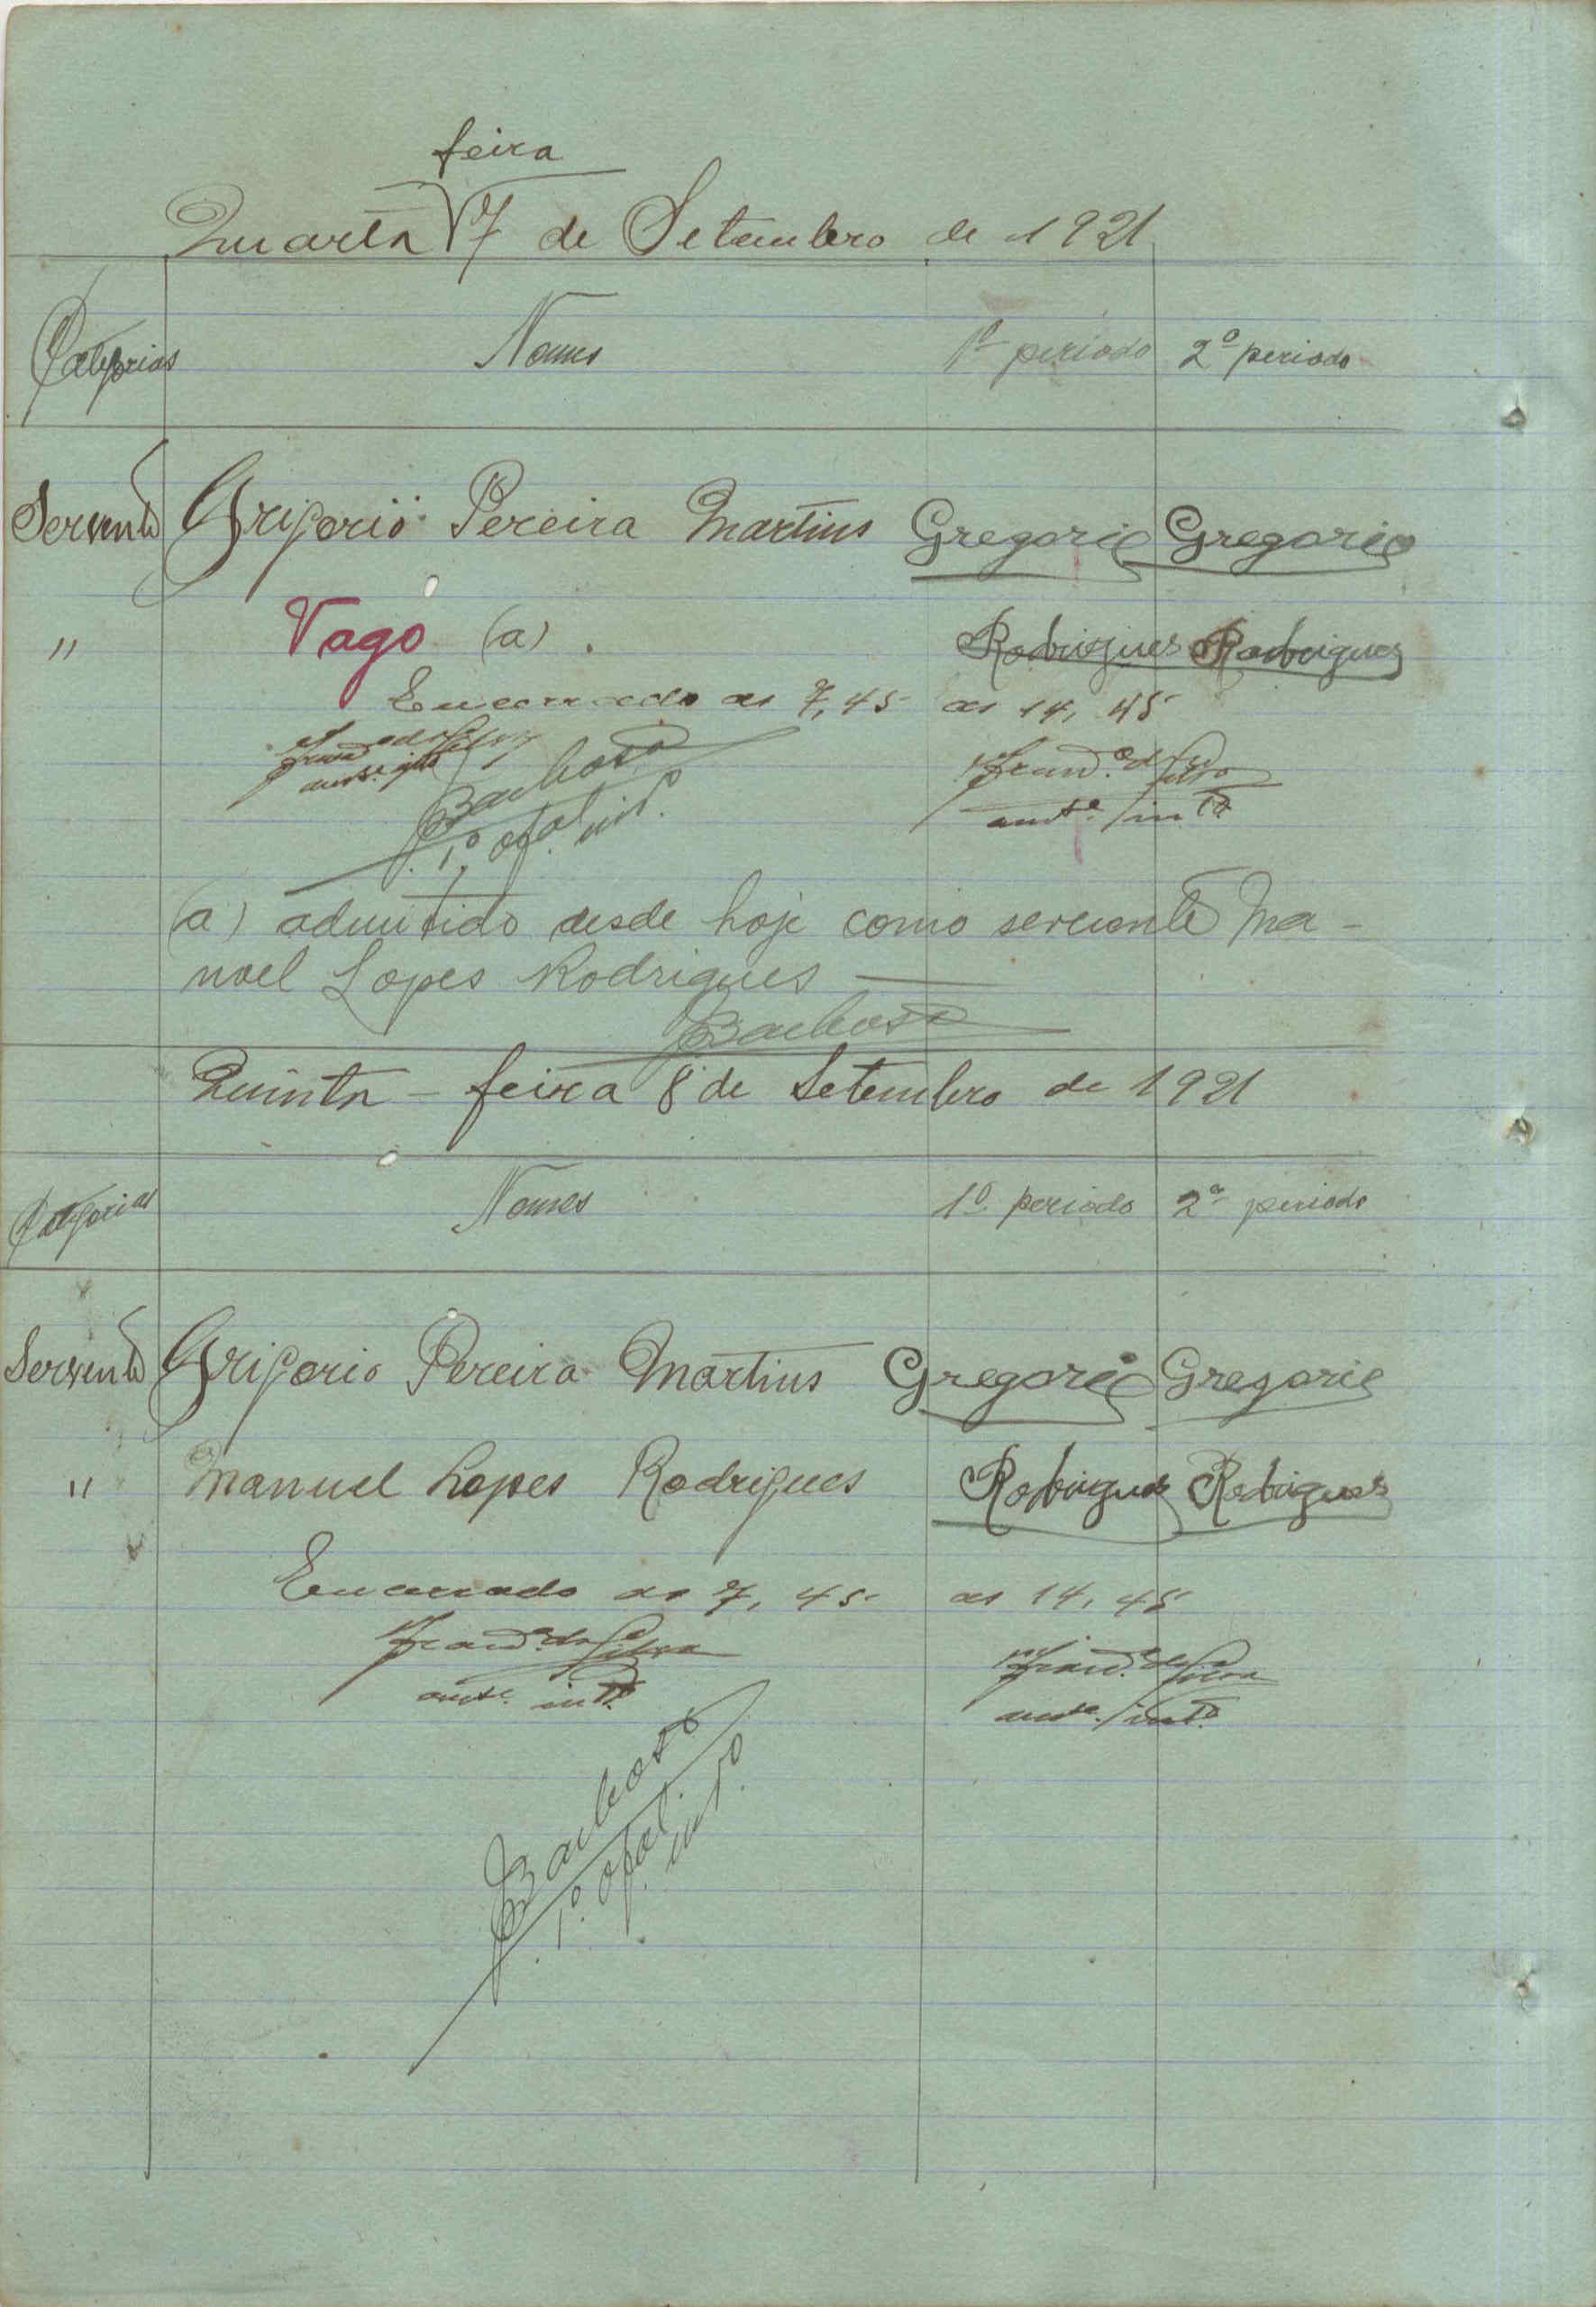 feira
Quarta 7 de Setembro de 1921
Categorias Nomes 1º periodo 2º periodo
Servente Grigorio Pereira Martins Gregorio Gregorio
" Vago (a). Rodrigues Rodrigues
Encerrado as 7,45 as 14,45
Barbosa
1º ofal. intº.
(a) admitido desde hoje como servente Ma-
noel Lopes Rodrigues —
Barbosa
Quinta-feira 8 de Setembro de 1921
Categorias Nomes 1º periodo 2º periodo
Servente Grigorio Pereira Martins Gregorio Gregorio
" Manuel Lopes Rodrigues Rodrigues Rodrigues
Encerrado as 7,45 as 14,45
Barbosa
1º. ofal. intº.